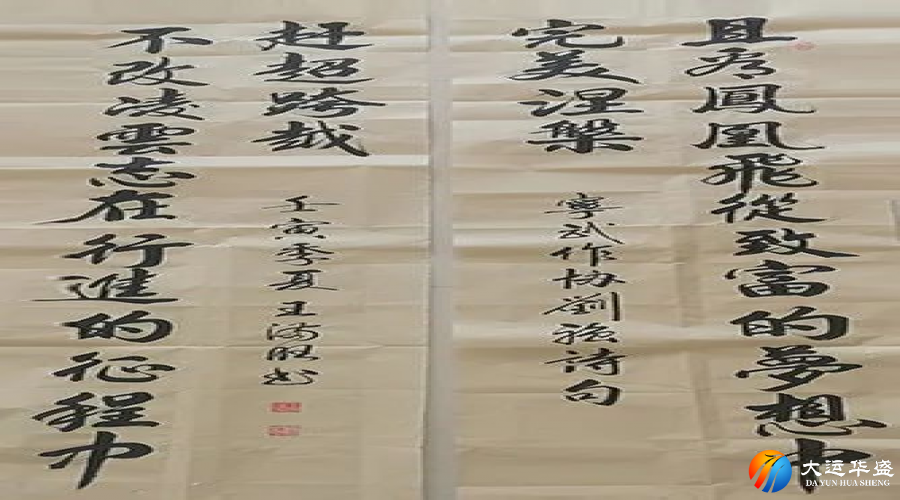 且看鳳凰飛從致富的夢想中
完美涅槃
寧武作協劉 詩句
不改凌雲志在行進的征程中
赶超跨越
壬寅季夏王海旺书
大运华盛
DA YUN HUA SHENG